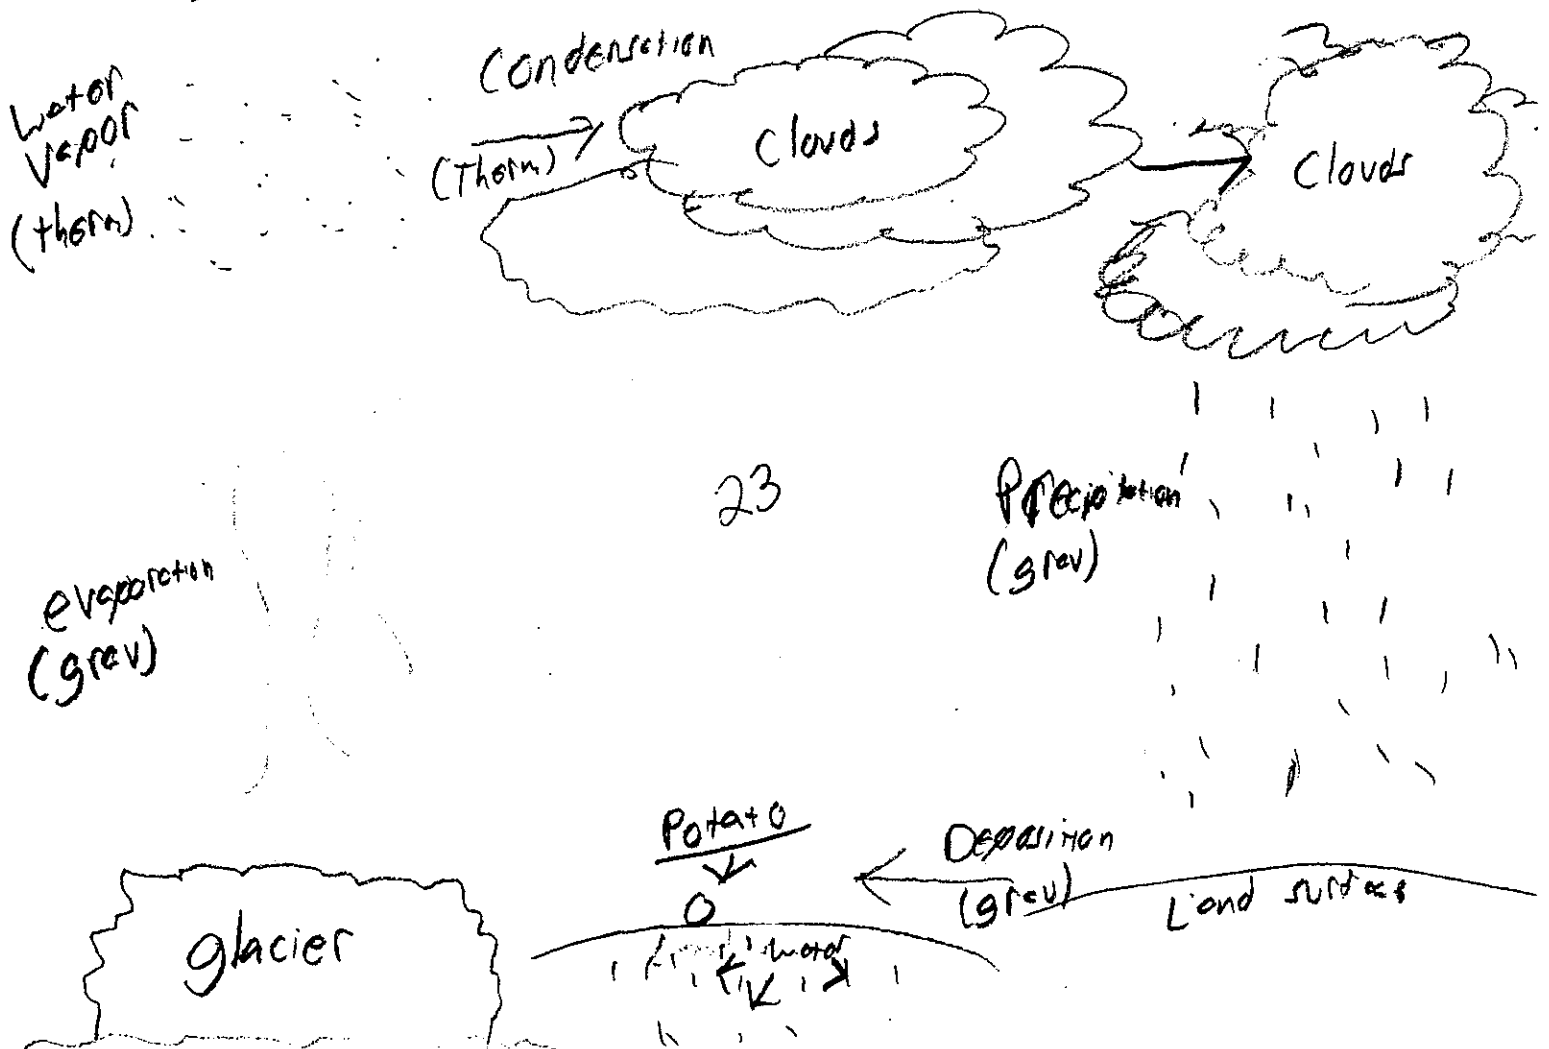 Water
Vapor
(therm)
Condensation
(Therm)
Clouds
Clouds
23
Precipitation
(grav)
evaporation
(grav)
Potato
Deposition
(grav)
Land surface
glacier
water